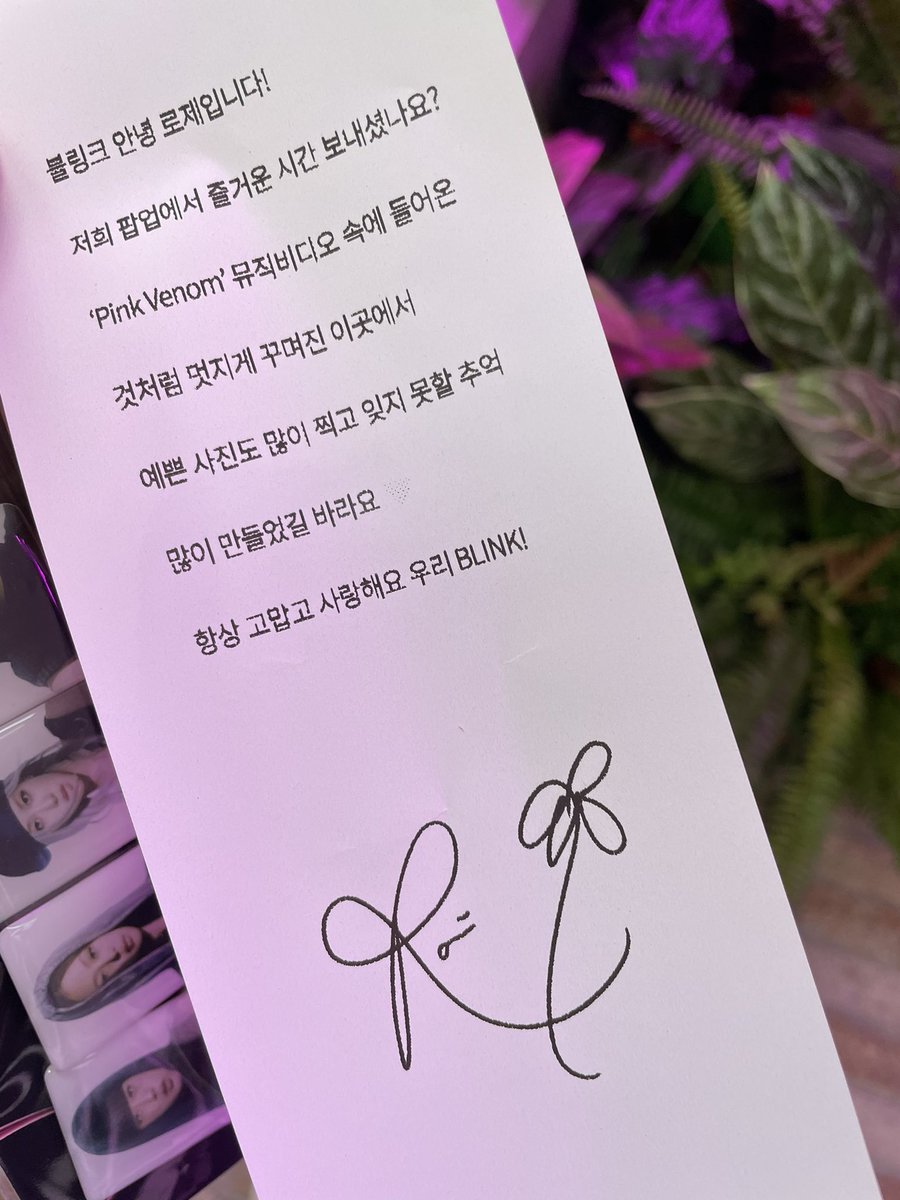 블링크 안녕 로제입니다!
저희 팝업에서 즐거운 시간 보내셨나요?
‘Pink Venom’ 뮤직비디오 속에 들어온
것처럼 멋지게 꾸며진 이곳에서
예쁜 사진도 많이 찍고 잊지 못할 추억
많이 만들었길 바라요
항상 고맙고 사랑해요 우리 BLINK!